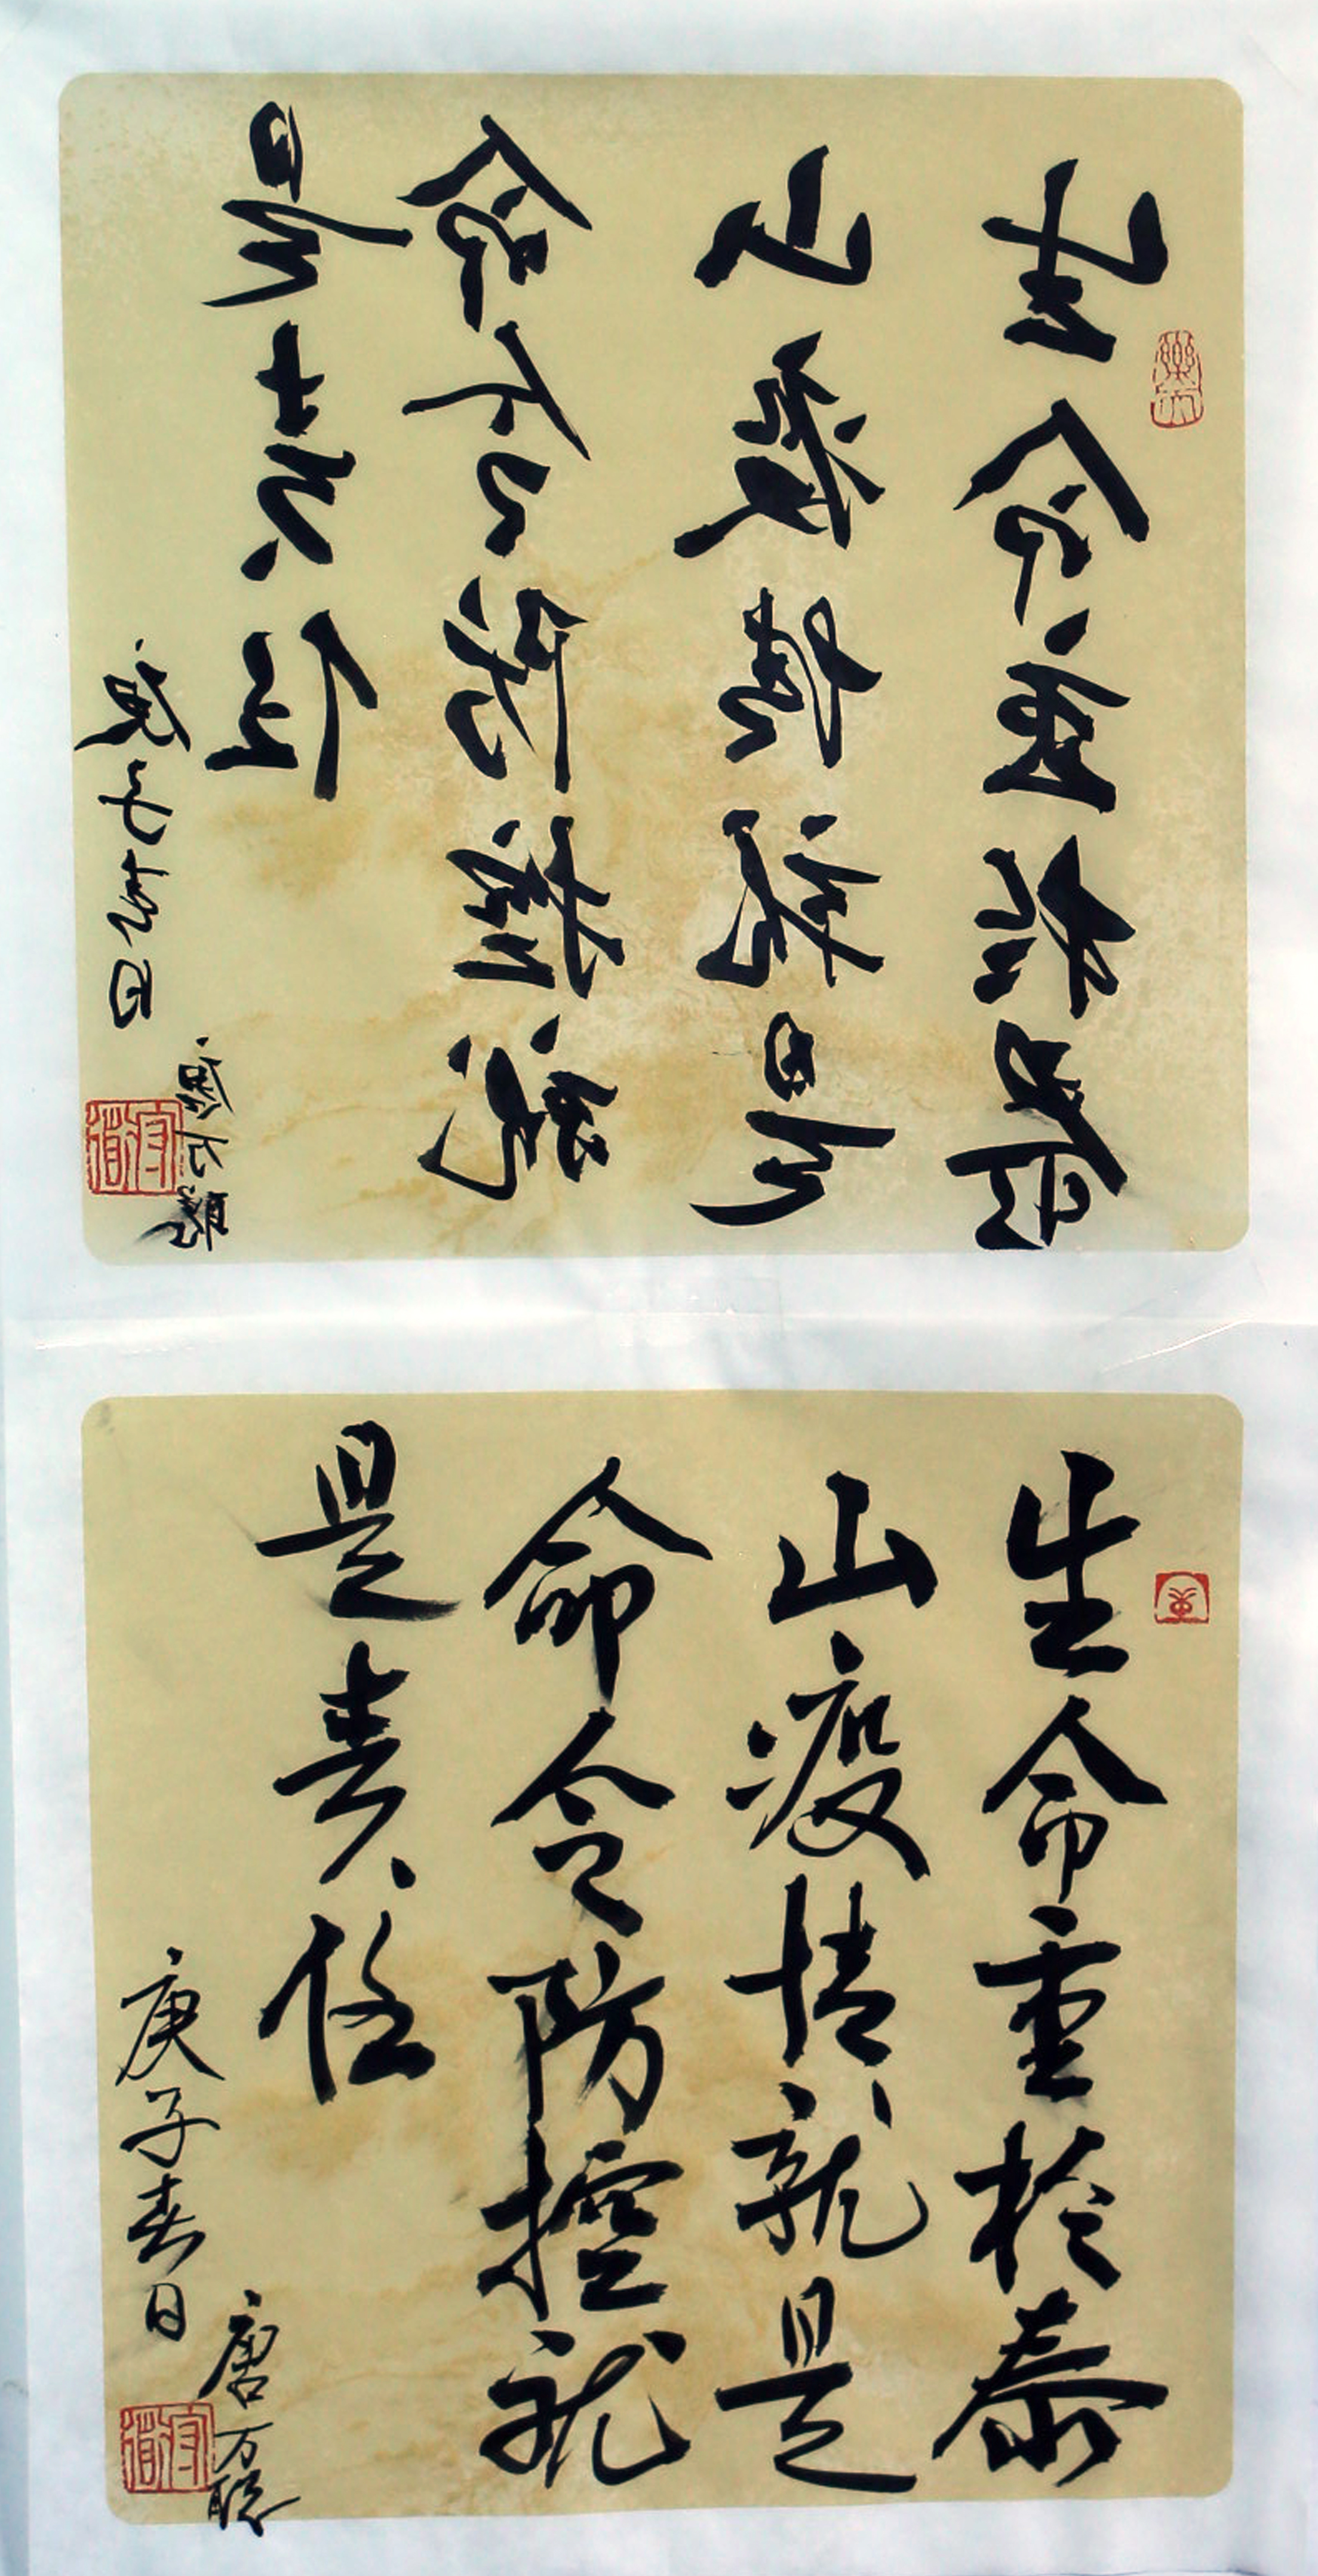 生命重於泰
山疫情就是
命令防控就
是责任
庚子春日
唐万聪
生命重於泰
山疫情就是
命令防控就
是责任
庚子春日
唐万聪